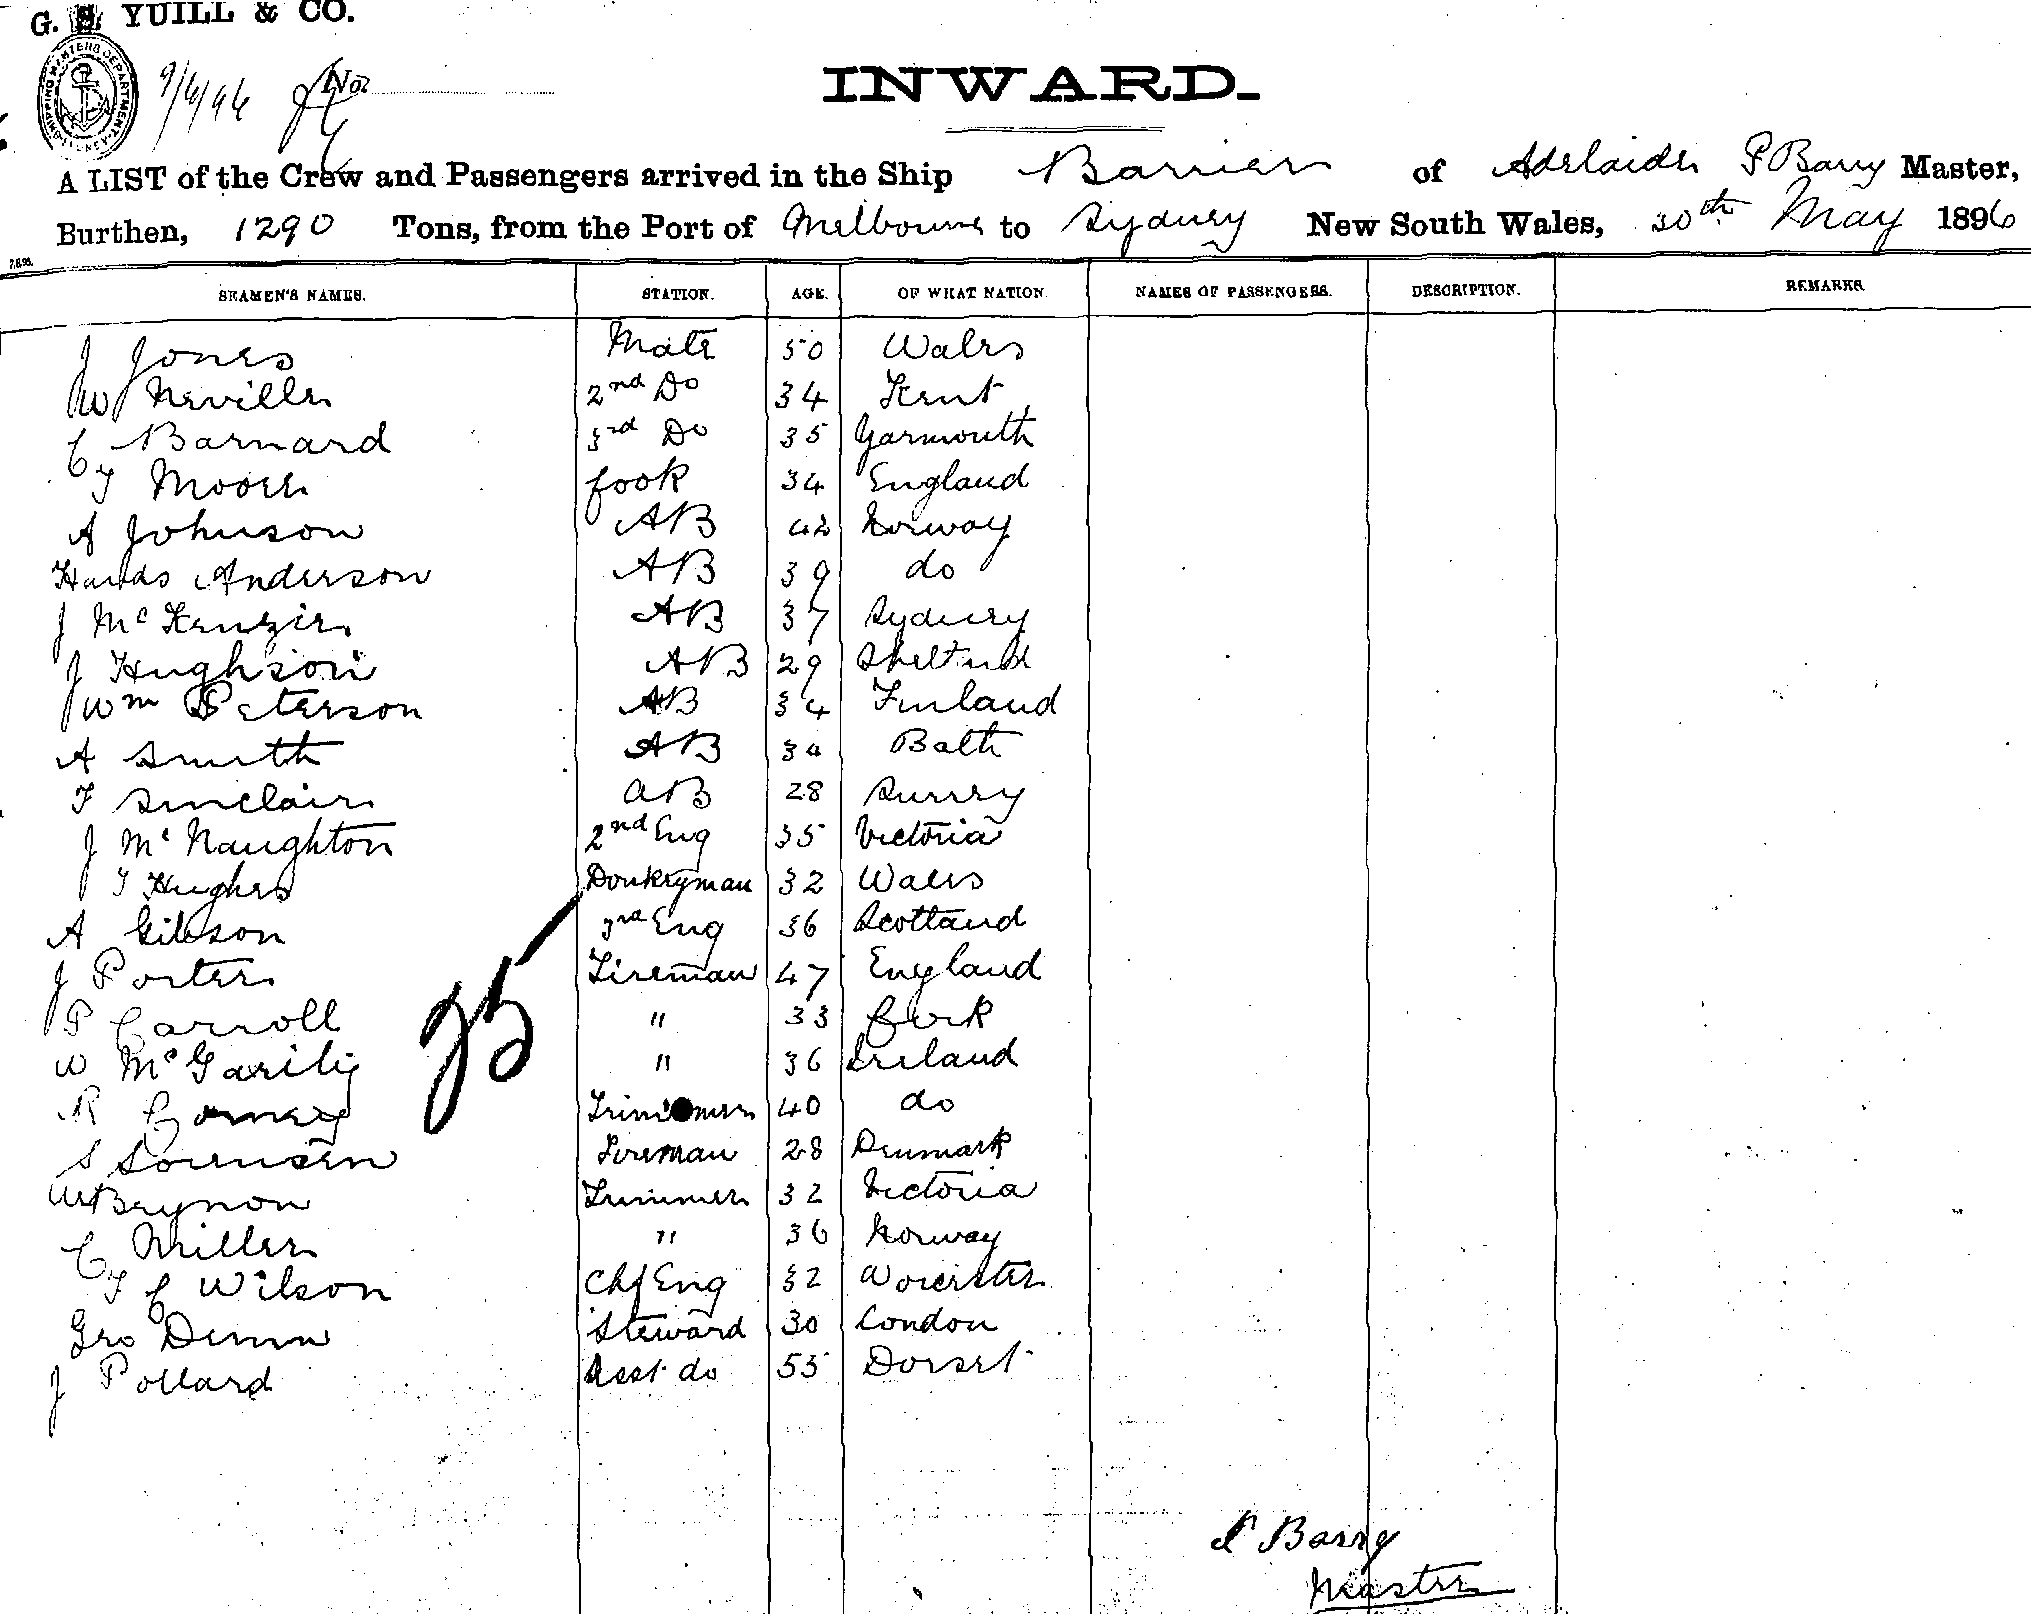 G. S. YUILL & CO.
SHIPPING MASTERS DEPARTMENT SYDNEY
9/6/96 No.
INWARD.
A LIST of the Crew and Passengers arrived in the Ship Barrier of Adelaide P Barry Master,
Burthen, 1290 Tons, from the Port of Melbourne to Sydney New South Wales, 30th May 1896
SEAMEN'S NAMES. STATION. AGE. OF WHAT NATION. NAMES OF PASSENGERS. DESCRIPTION. REMARKS
J Jones Mate 50 Wales
W Neville 2nd Do 34 Kent
C Barnard 3rd Do 35 Yarmouth
T Moore Cook 34 England
A Johnson AB 42 Norway
Anderson AB 39 do
J McKenzie AB 37 Sydney
J Hughson AB 29 Shetland
Wm Peterson AB 34 Finland
A Smith AB 34 Bath
F Sinclair AB 28 Surrey
J McNaughton 2nd Eng 35 Victoria
T Hughes Donkeyman 32 Wales
A Gibson 3rd Eng 36 Scotland
J Porter Fireman 47 England
P Carroll " 33 Cork
W " 36 Ireland
R Trimmer 40 do
S Sorensen Fireman 28 Denmark
Beynon Trimmer 32 Victoria
C Miller " 36 Norway
T C Wilson Chf Eng 32 Worcester
Geo Dunn Steward 30 London
J Pollard Asst do 55 Dorset
25
P Barry
Master